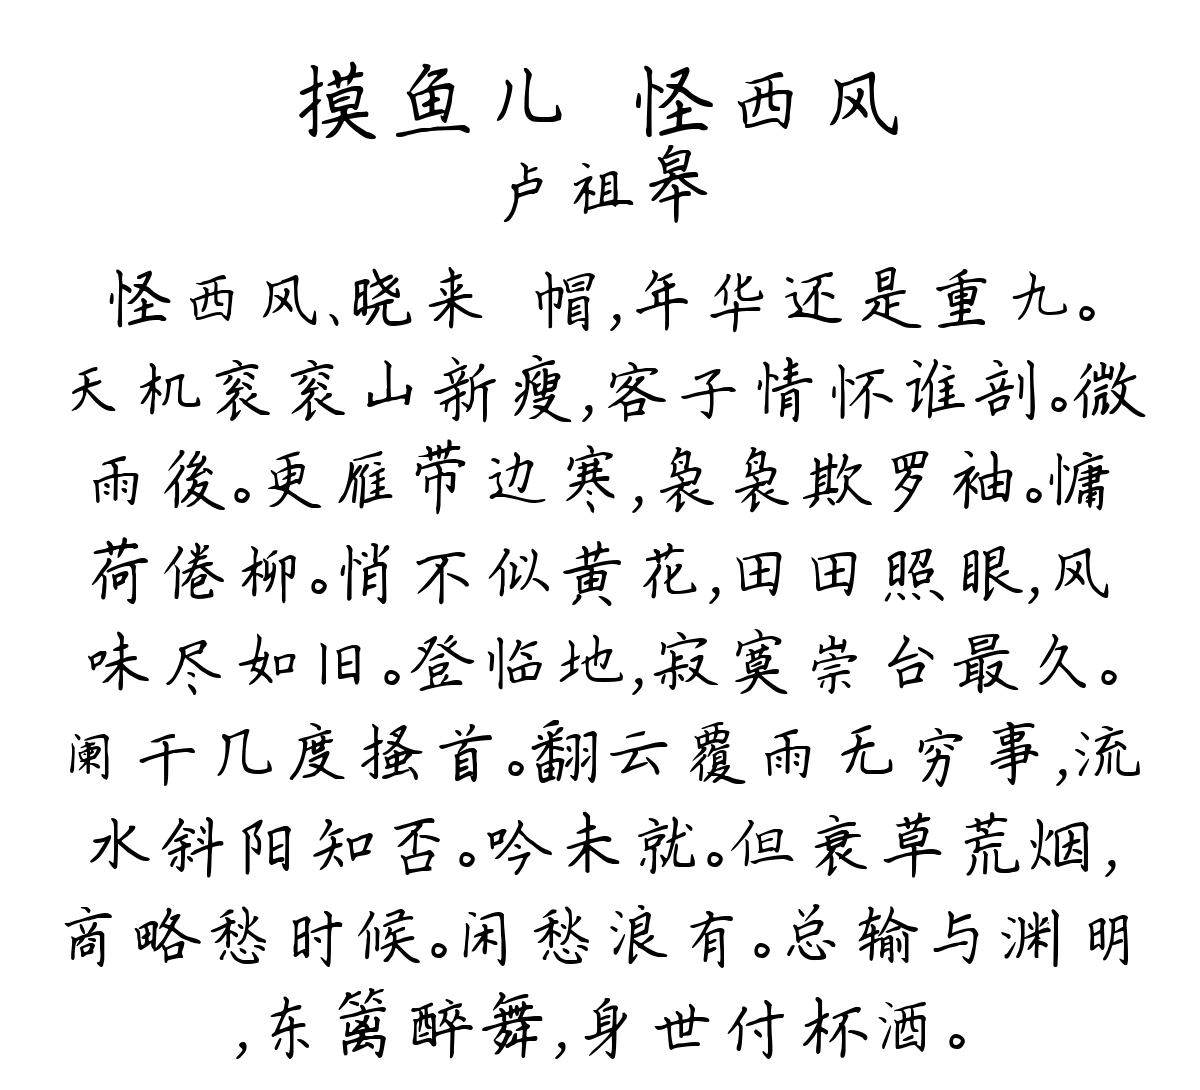 摸鱼儿 怪西风
卢祖皋
怪西风、晓来 帽,年华还是重九。
天机衮衮山新瘦,客子情怀谁剖。微
雨後。更雁带边寒,袅袅欺罗袖。慵
荷倦柳。悄不似黄花,田田照眼,风
味尽如旧。登临地,寂寞崇台最久。
阑干几度搔首。翻云覆雨无穷事,流
水斜阳知否。吟未就。但衰草荒烟,
商略愁时候。闲愁浪有。总输与渊明
,东篱醉舞,身世付杯酒。